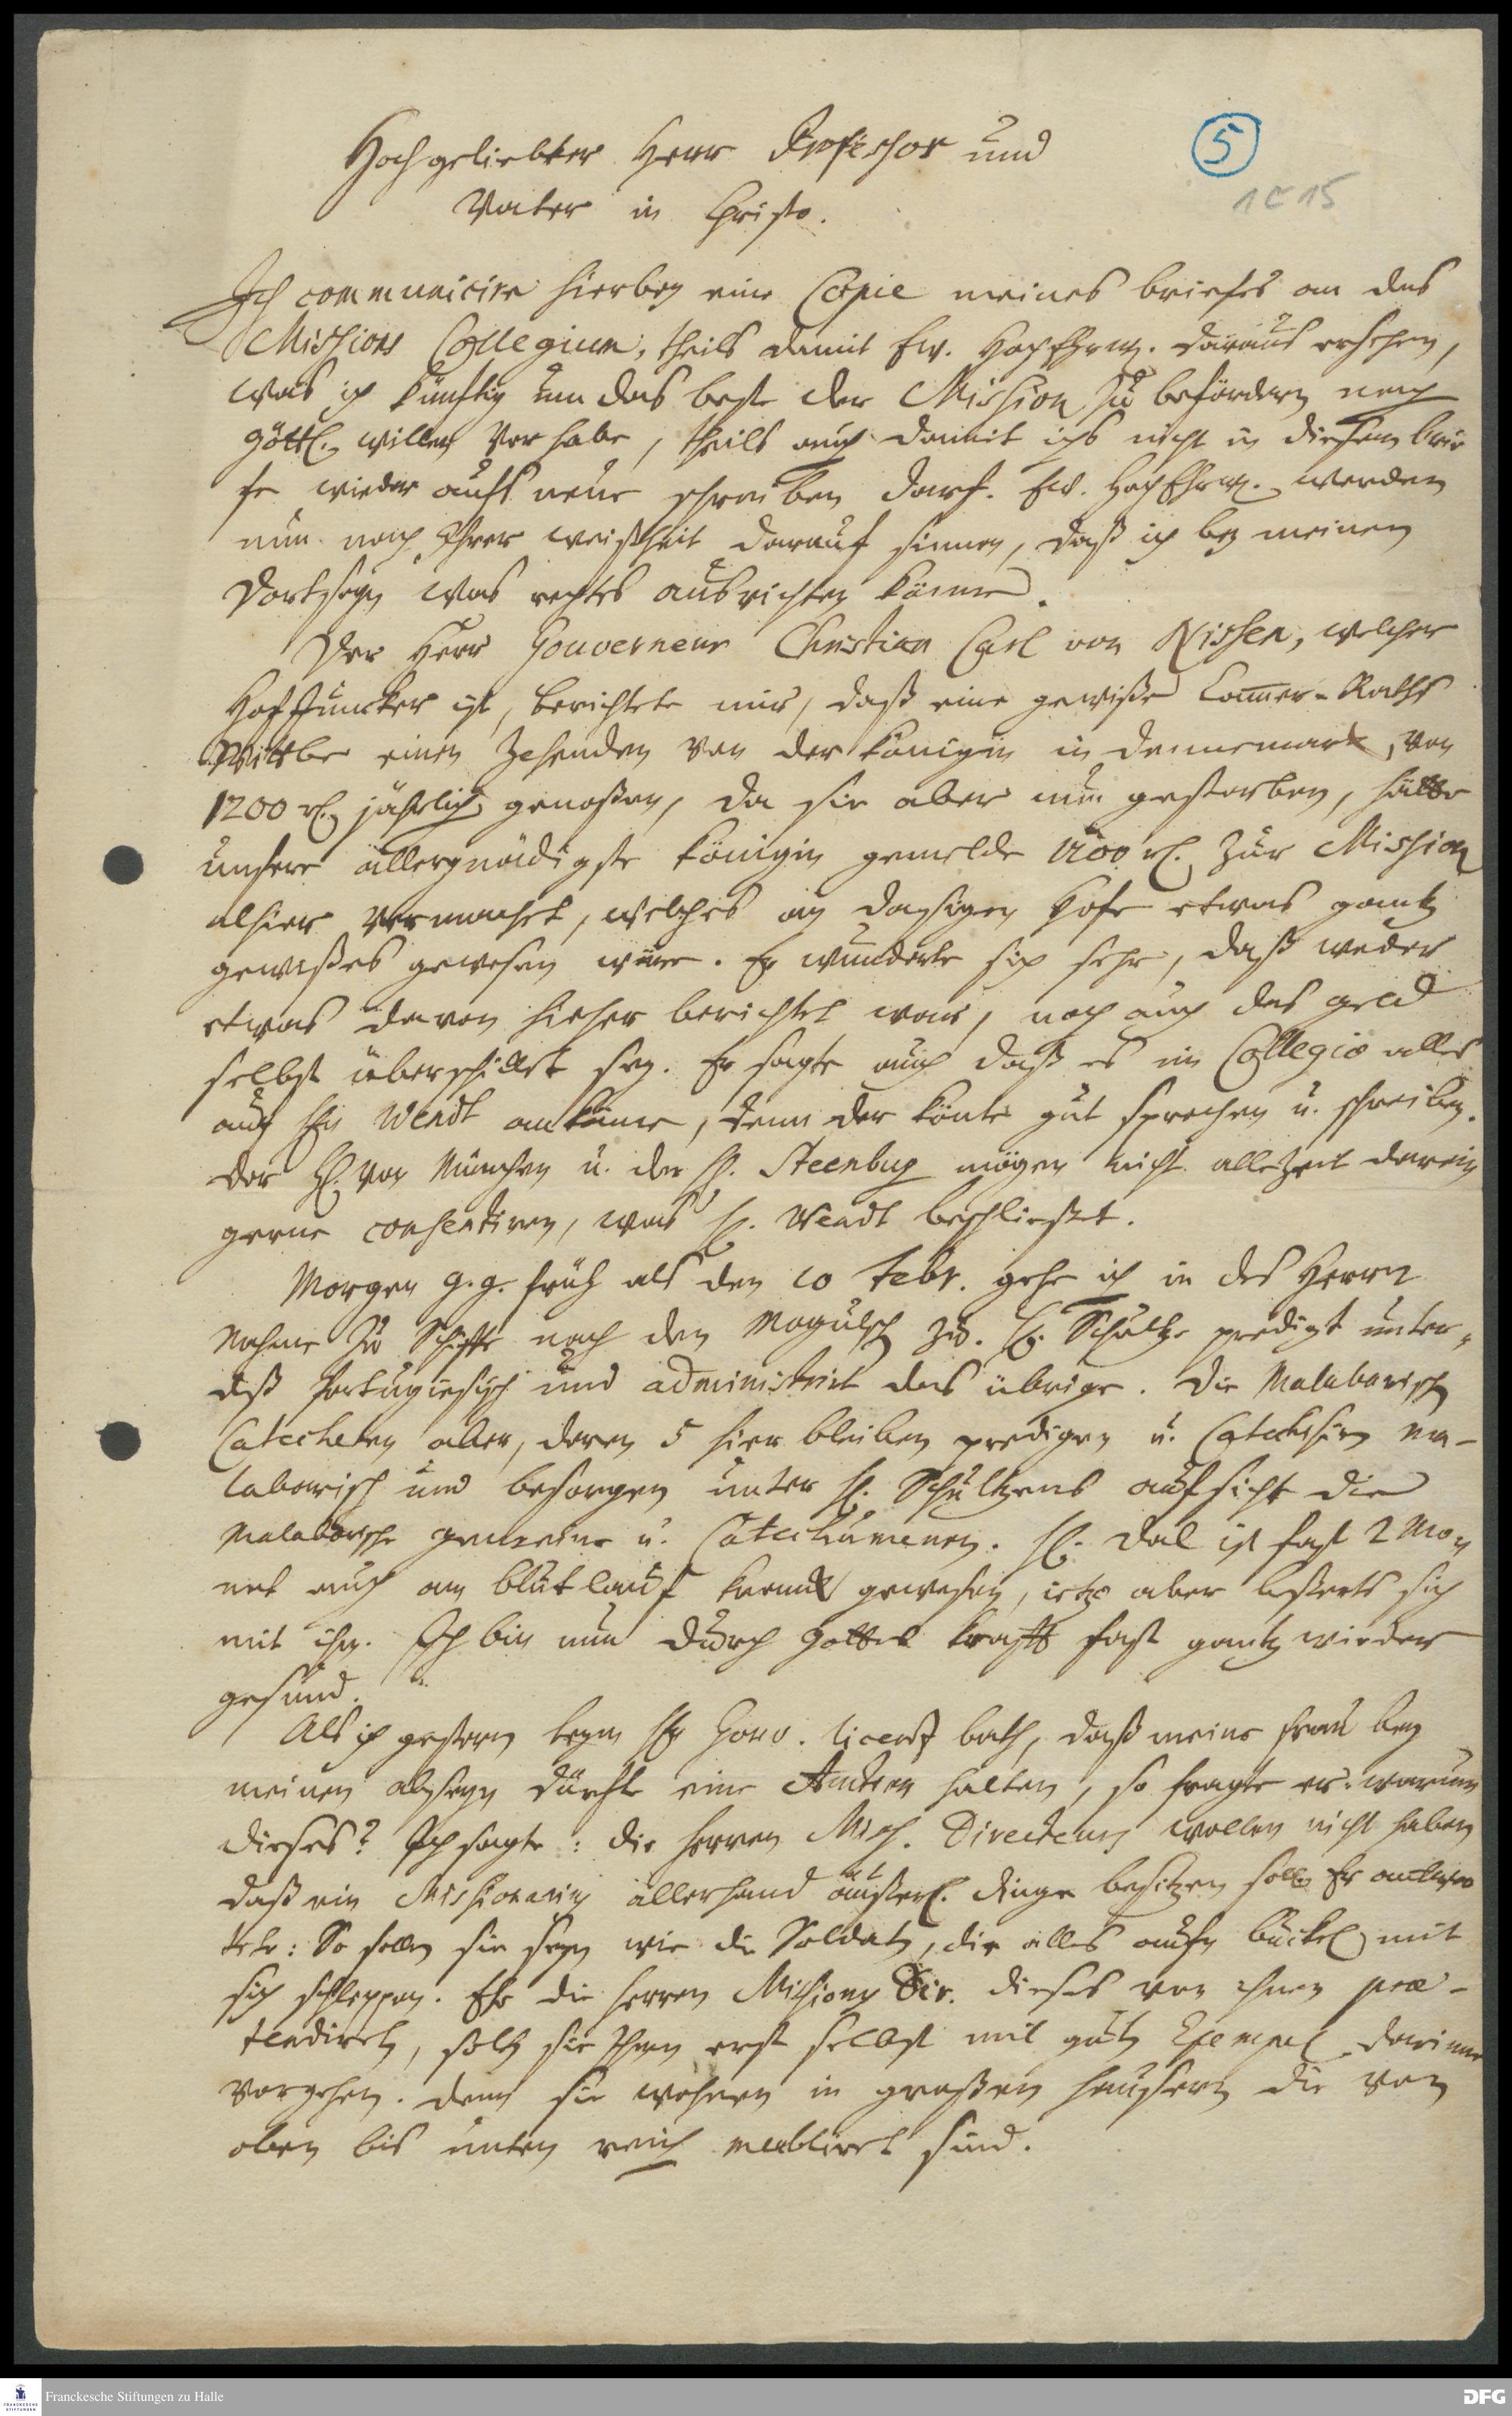 Hochgeliebter Herr Professor und
5
1 C 15
Vater in Christo.
Ich communicire hierbey eine Copie meines briefes an das
Missions Collegium, theils damit Ew. HochEhrw. daraus ersehen,
was ich künftig um das beste der Mission zu befördern nach
göttl. willen vorhabe, theils auch damit ichs nicht in diesem brie
fe wieder aufs neue schreiben darf. Ew. HochEhrw. werden
nun nach Ihrer weißheit darauf sinnen, daß ich bey meinem
dortseyn was rechtes ausrichten könne.
Der Herr Gouverneur Christian Carl von Nissen, welcher
HofJuncker ist, berichtete mir, daß eine gewiße Cammer-Raths
Wittbe einen Zehenden von der Königin in Dennemark, von
1200 rl. jährlich genoßen, da sie aber nun gestorben, hätte
unsere allergnädigste Königin gemelde 1200 rl. zur Mission
alhier vermachet, welches am dasigen Hofe etwas gantz
gewißes gewesen wäre. Er wunderte sich sehr, daß weder
etwas davon hieher berichtet war, noch auch das geld
selbst überschickt sey. Er sagte auch daß es im Collegio alles
auf Hn Wendt ankäme, denn der könte gut sprechen u. schreiben.
Der H. von München u. der H. Steenbuch mögen nicht allezeit darein
gerne consentiren, was H. Wendt beschließet.
Morgen g. g. früh als den 10 Febr. gehe ich in des Herrn
Nahme zu Schiffe nach den Mogulsch zu. H. Schultze predigt unter-
deß Portugiesisch und administrirt das übrige. Die Malabarisch
Catecheten aber, deren 5 hier bleiben predigen u. Catechisiren ma-
labarisch und besorgen unter H. Schultzens aufsicht die
Malabarische gemeine u. Catechumenen. H. Dal ist fast 2 Mo-
nat auch am blutlauf kranck gewesen, ietzo aber beßerts sich
mit ihm. Ich bin nun durch Gottes krafft fast gantz wieder
gesund.
Als ich gestern beym Hn Gouv. licentz bath, daß meine frau bey
meinen abseyn dürfte eine Auction halten, so fragte er: warum
dieses? Ich sagte: die Herren Miss. Directeurs wollen nicht haben
daß ein Missionarius allerhand äußerl. dinge besitzen soll. Er antwor
tete: So sollen sie seyn wie die Soldaten, die alles aufm buckel mit
sich schleppen. Ehe die Herren Missions Dir. dieses von ihnen præ-
tendireten, solten sie Ihnen erst selbst mit guten Exempel darinne
vorgehen. denn sie wohnen in großen Häusern die von
oben bis unten reich meublirt sind.
Franckesche Stiftungen zu Halle
DFG